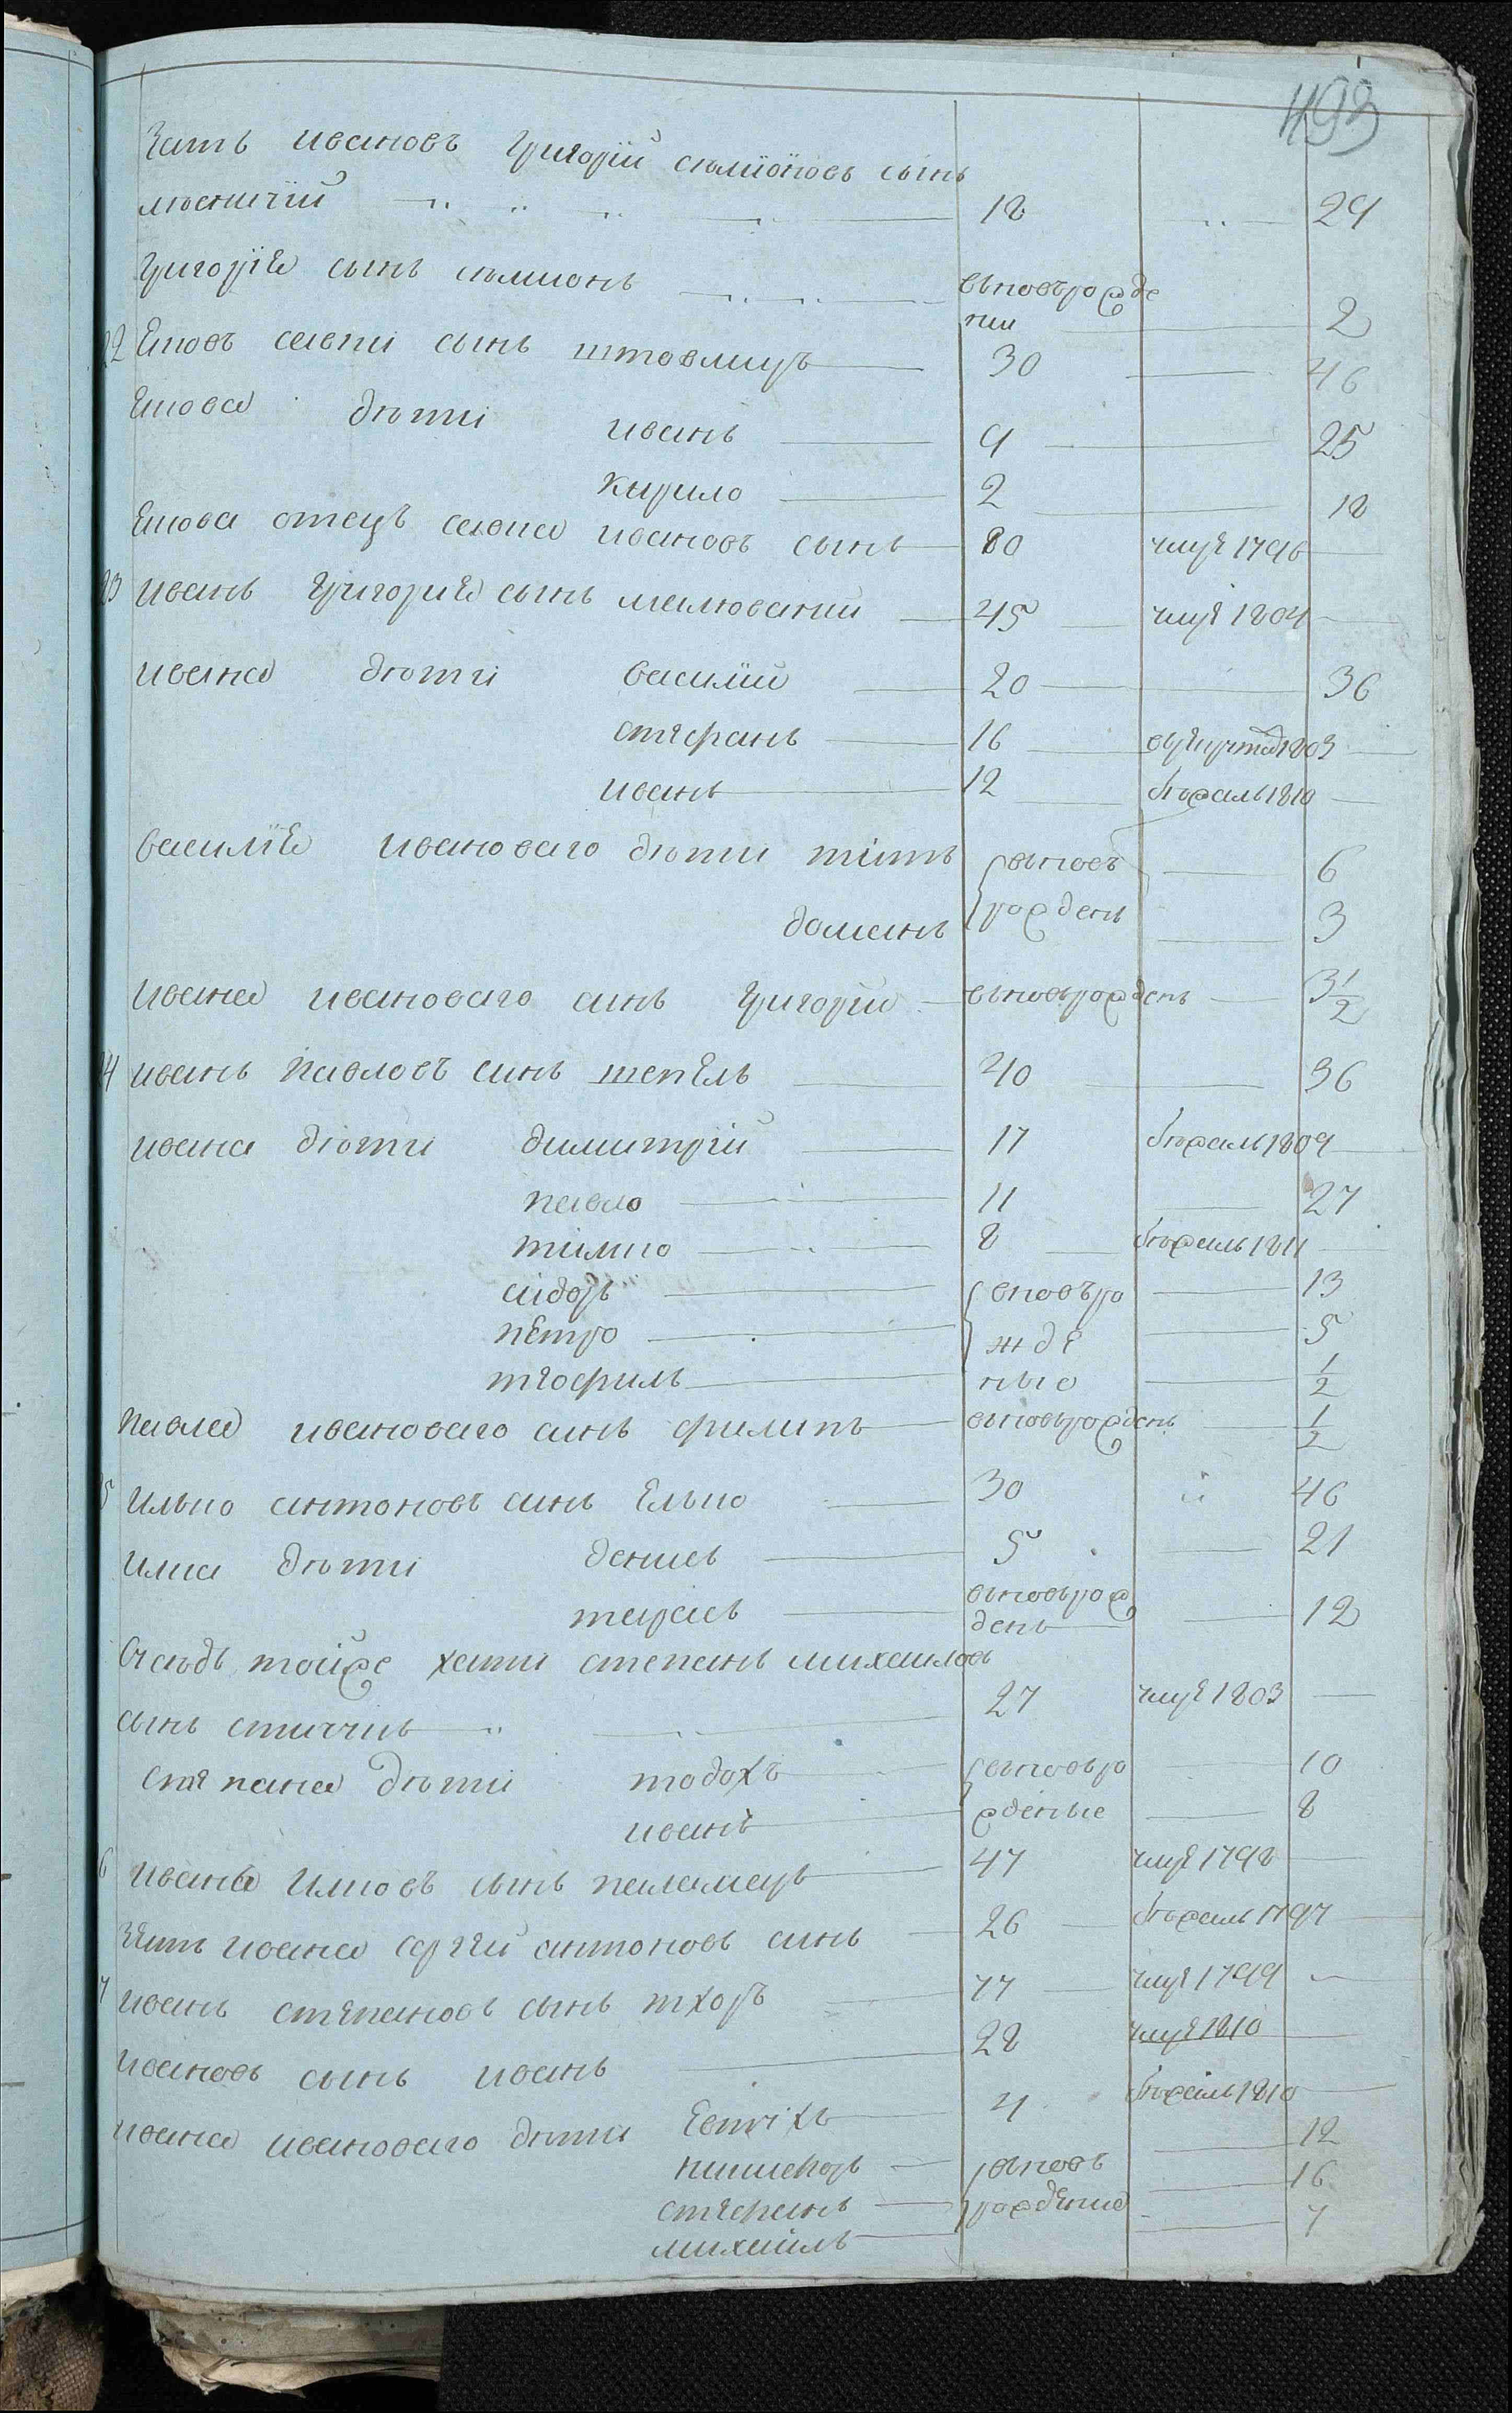 493
Зать ивановъ Григорїй сѣмїоновъ сынъ
лѣсничїй 18 29
Григорїя сынъ сѣмионъ вьновърожде
нии 2
22 Яковъ савки сынъ 30 46
Якова дѣти иванъ 9 25
Кирило 2 18
Якова отецъ савка ивановъ сынъ 80 умре 1796
23 иванъ Григория сынъ малюваний 45 умре 1804
ивана дѣти василий 20 36
стефанъ 16 1803
иванъ 12 бѣжалъ 1810
василїя ивановаго дѣти тїтъ вьновъ 6
даманъ рожденъ 3
ивана ивановаго синъ григории вьновьрожденъ 3 1/2
24 иванъ Павловъ синъ шепель 40 36
ивана дѣти димитрїй 17 бѣжалъ 1809
павло 11 27
тимко 8 бѣжалъ 1811
сидоръ вновъро 13
петро жде 5
теофилъ ные 1/2
павла ивановаго синъ филипъ вьновьрожденъ 1/2
5 илько антоновъ синъ Елько 30 46
илка дѣти денисъ 5 21
тарасъ вьновьрож
денъ 12
тойже хати степанъ михаиловъ
сынъ 27 умре 1803
степана дѣти тодохъ вьновьро 10
иванъ жденые 8
6 ивана илковъ сынъ паламаръ 47 умре 1798
Зять ивана сергей антоновъ синъ 26 бѣжалъ 1797
7 иванъ степановъ сынъ тхоръ 77 умре 1799
ивановъ сынъ иванъ 28 умре 1810
ивана ивановаго дѣти Евтихъ 4 бѣжалъ 1810
никифоръ вьновъ 12
стефанъ рождение 16
михаилъ 7